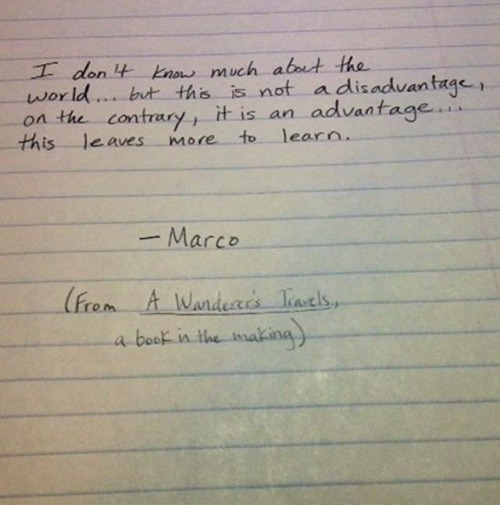 I don't know much about the
world... but this is not a disadvantage,
on the contrary, it is an advantage...
this leaves more to learn.
– Marco
(From A Wanderer's Travels,
a book in the making)